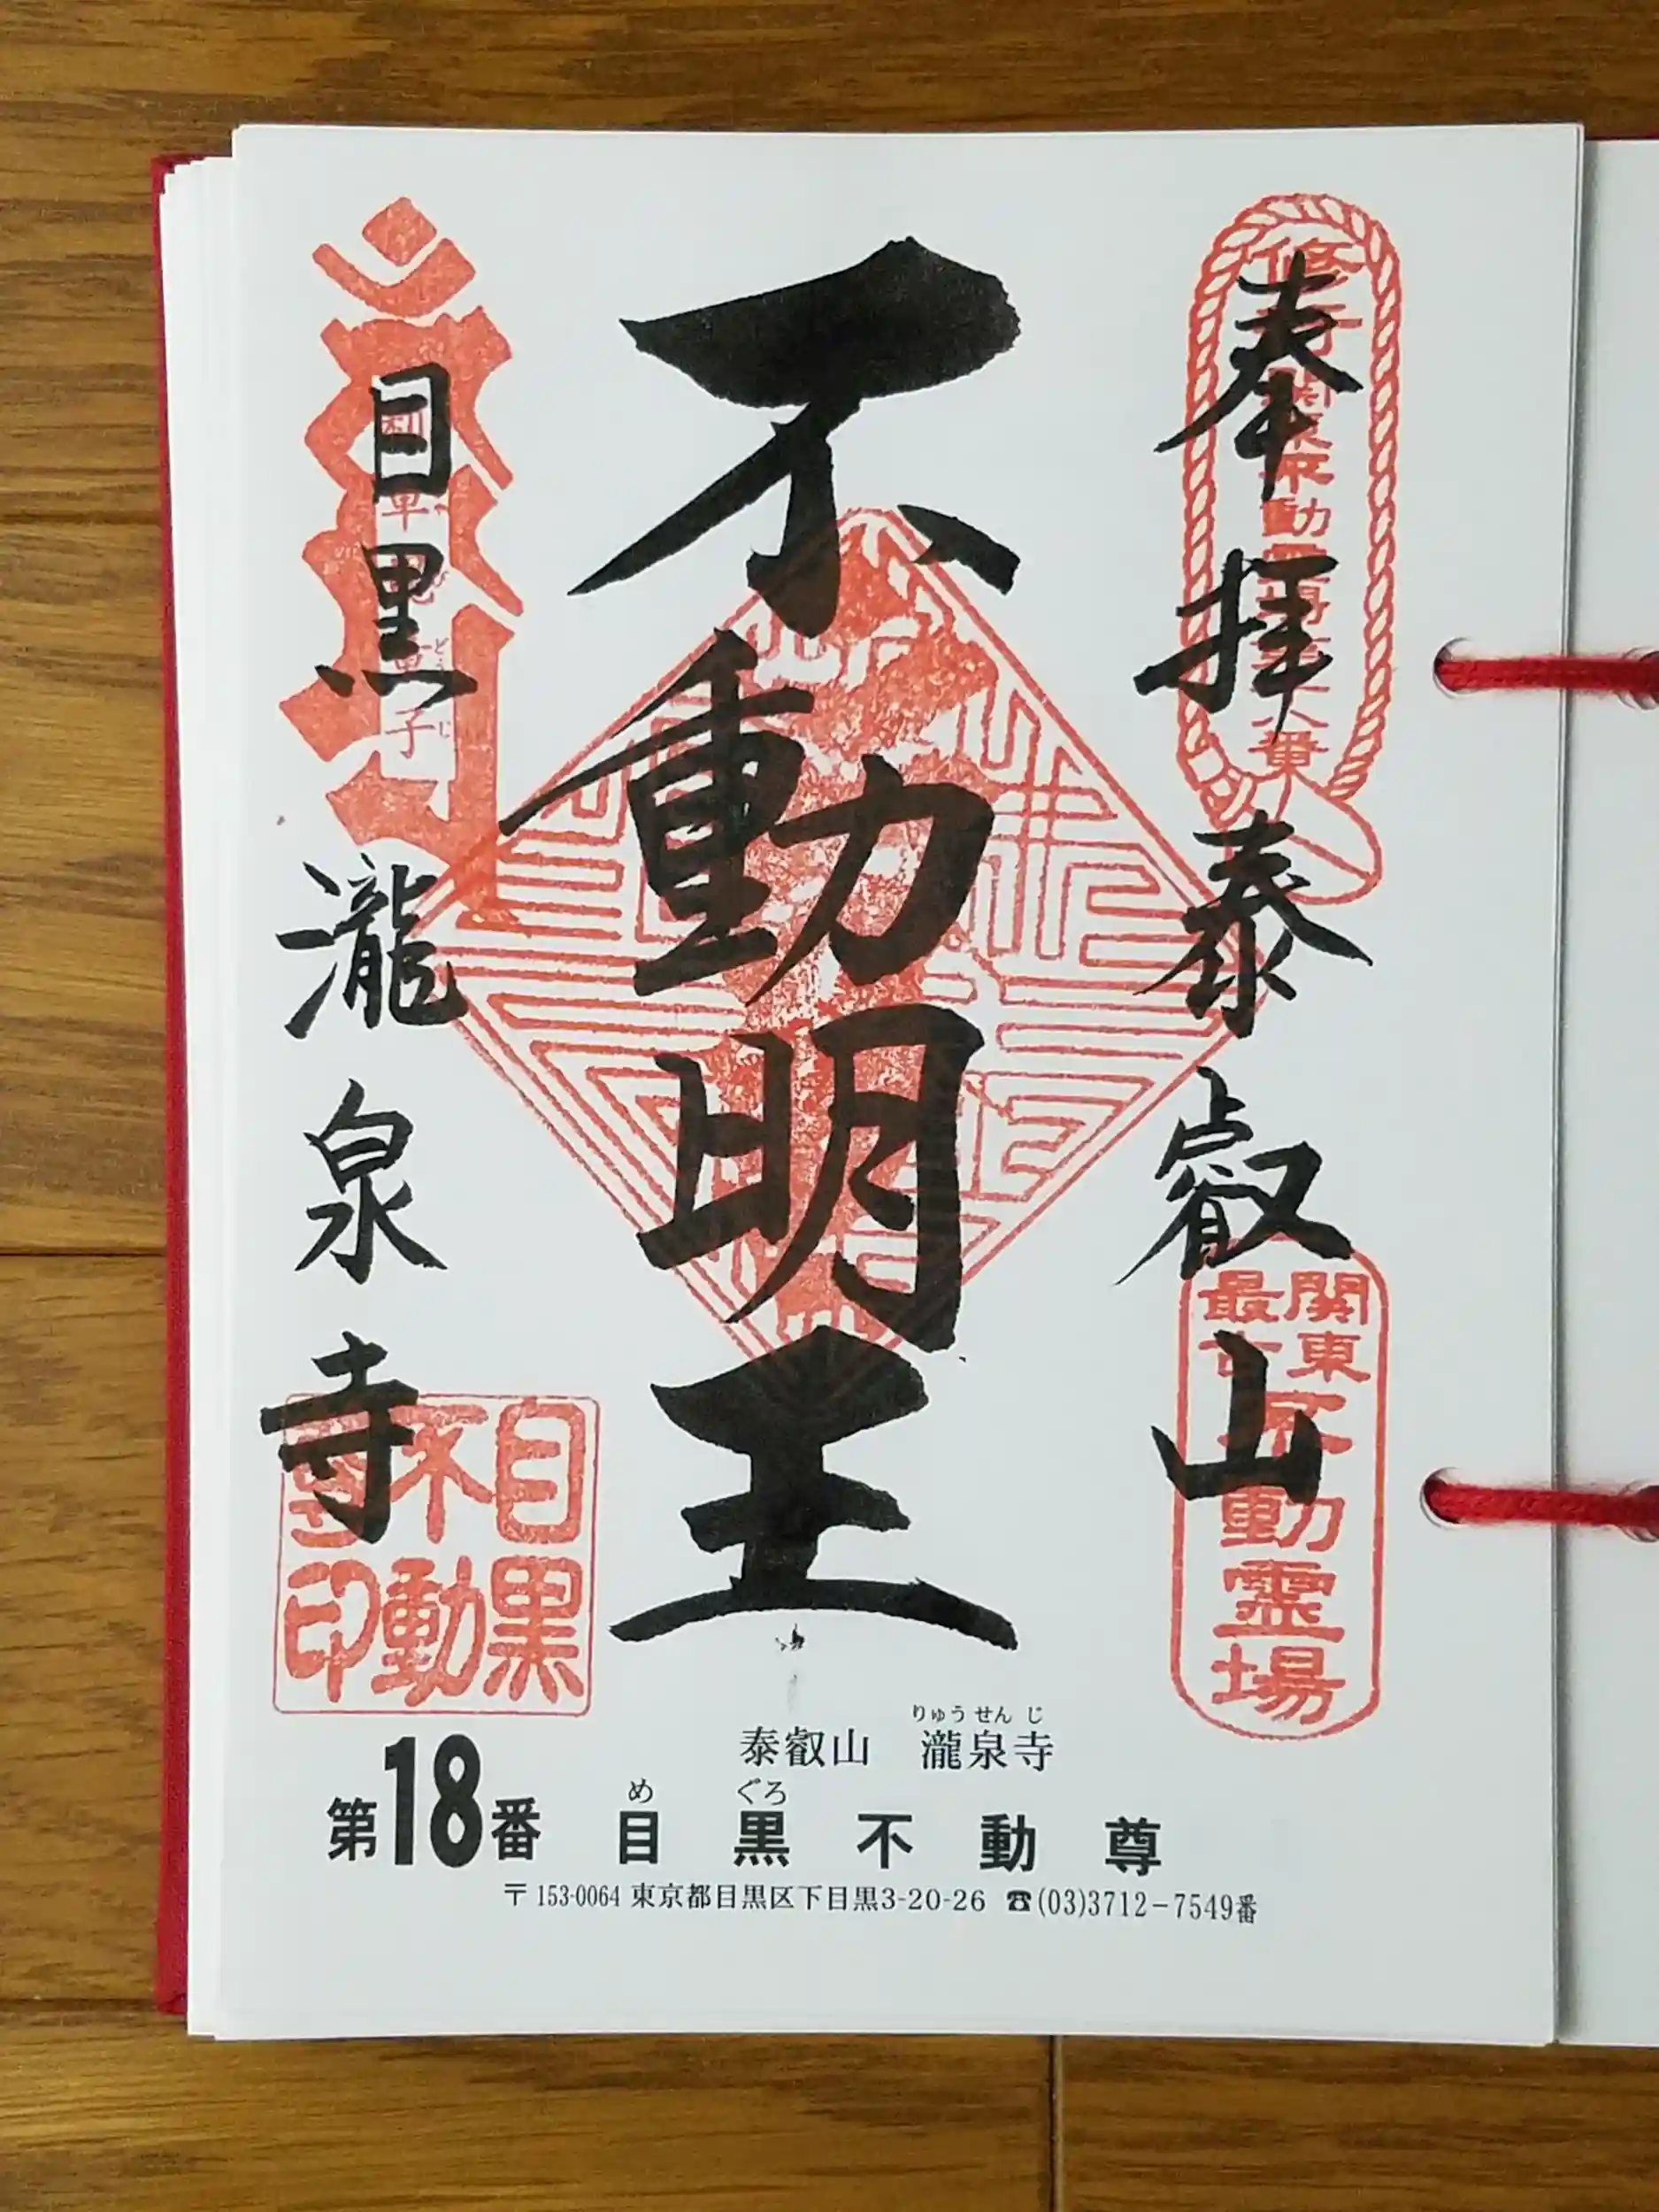 奉拝 泰叡山
不動明王
目黒 瀧泉寺
関東
最古
不動霊場
目黒
不動
尊印
りゅう せん じ
泰叡山 瀧泉寺
め ぐろ
第18番 目黒不動尊
〒153-0064 東京都目黒区下目黒3-20-26 ☎(03)3712-7549番